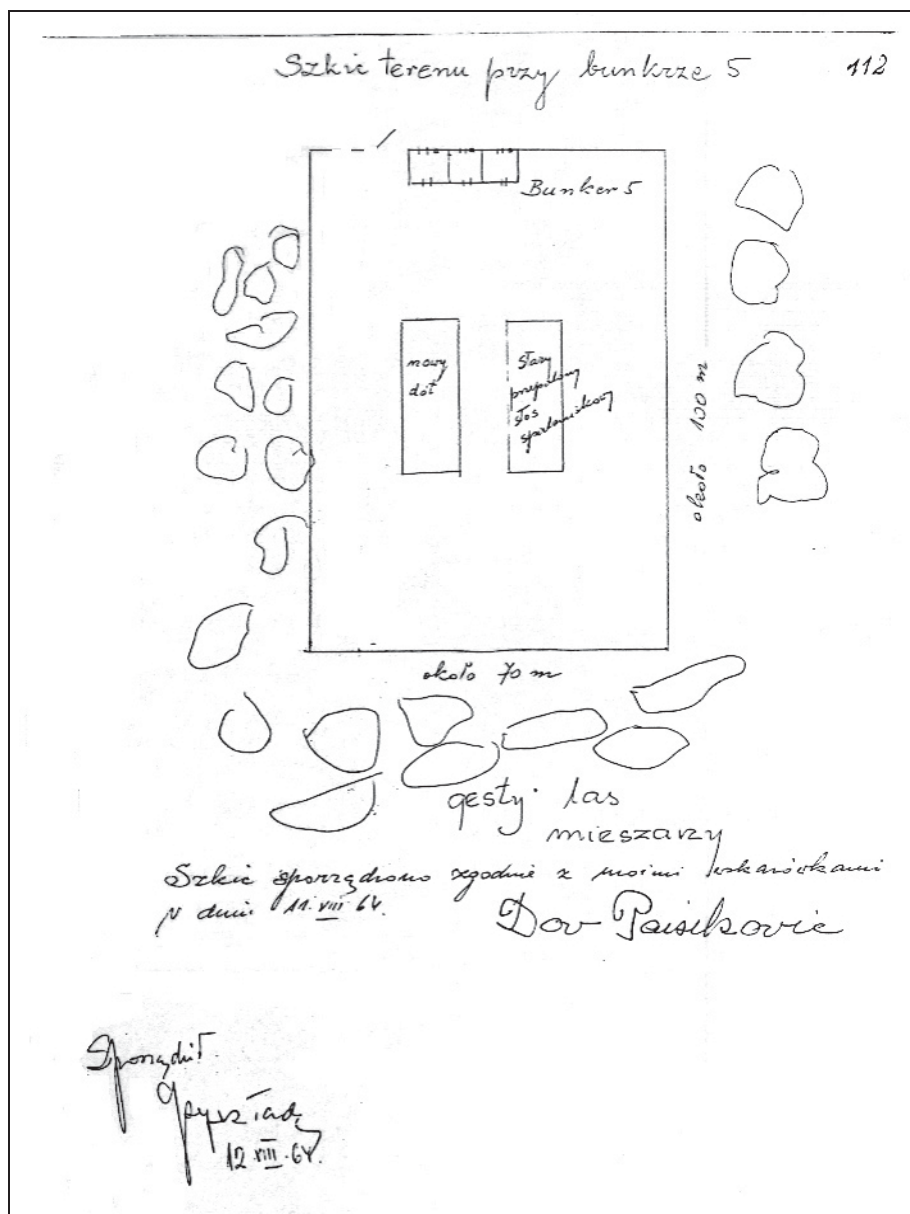 Szkic terenu przy bunkrze 5
112
Bunker 5
nowy
dół
stary
przepalony
stos
spaleniskowy
około 100 m
około 70 m
gęsty las
mieszany
Szkic sporządzono zgodnie z moimi wskazówkami
w dniu 11.VIII 64.
Dov Paisikovic
Sporządził
12.VIII.64.